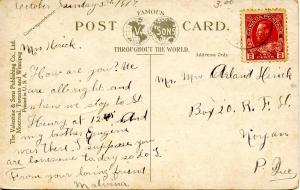 FAMOUS
POST CARD.
V & SONS
THROUGHOUT THE WORLD.
The Valentine & Sons Publishing Co., Ltd.
Montreal, Toronto and Winnipeg
Printed in
Address Only
3.00
Mrs
How are you? We
are allright and
when we stop to St.
Henry at 12.45 And
my brother Eugene
was there. I suppose you
are lonesome today so do I
From your loving friend
Malvina
Mr.
Box 20. R. F.
P. Que